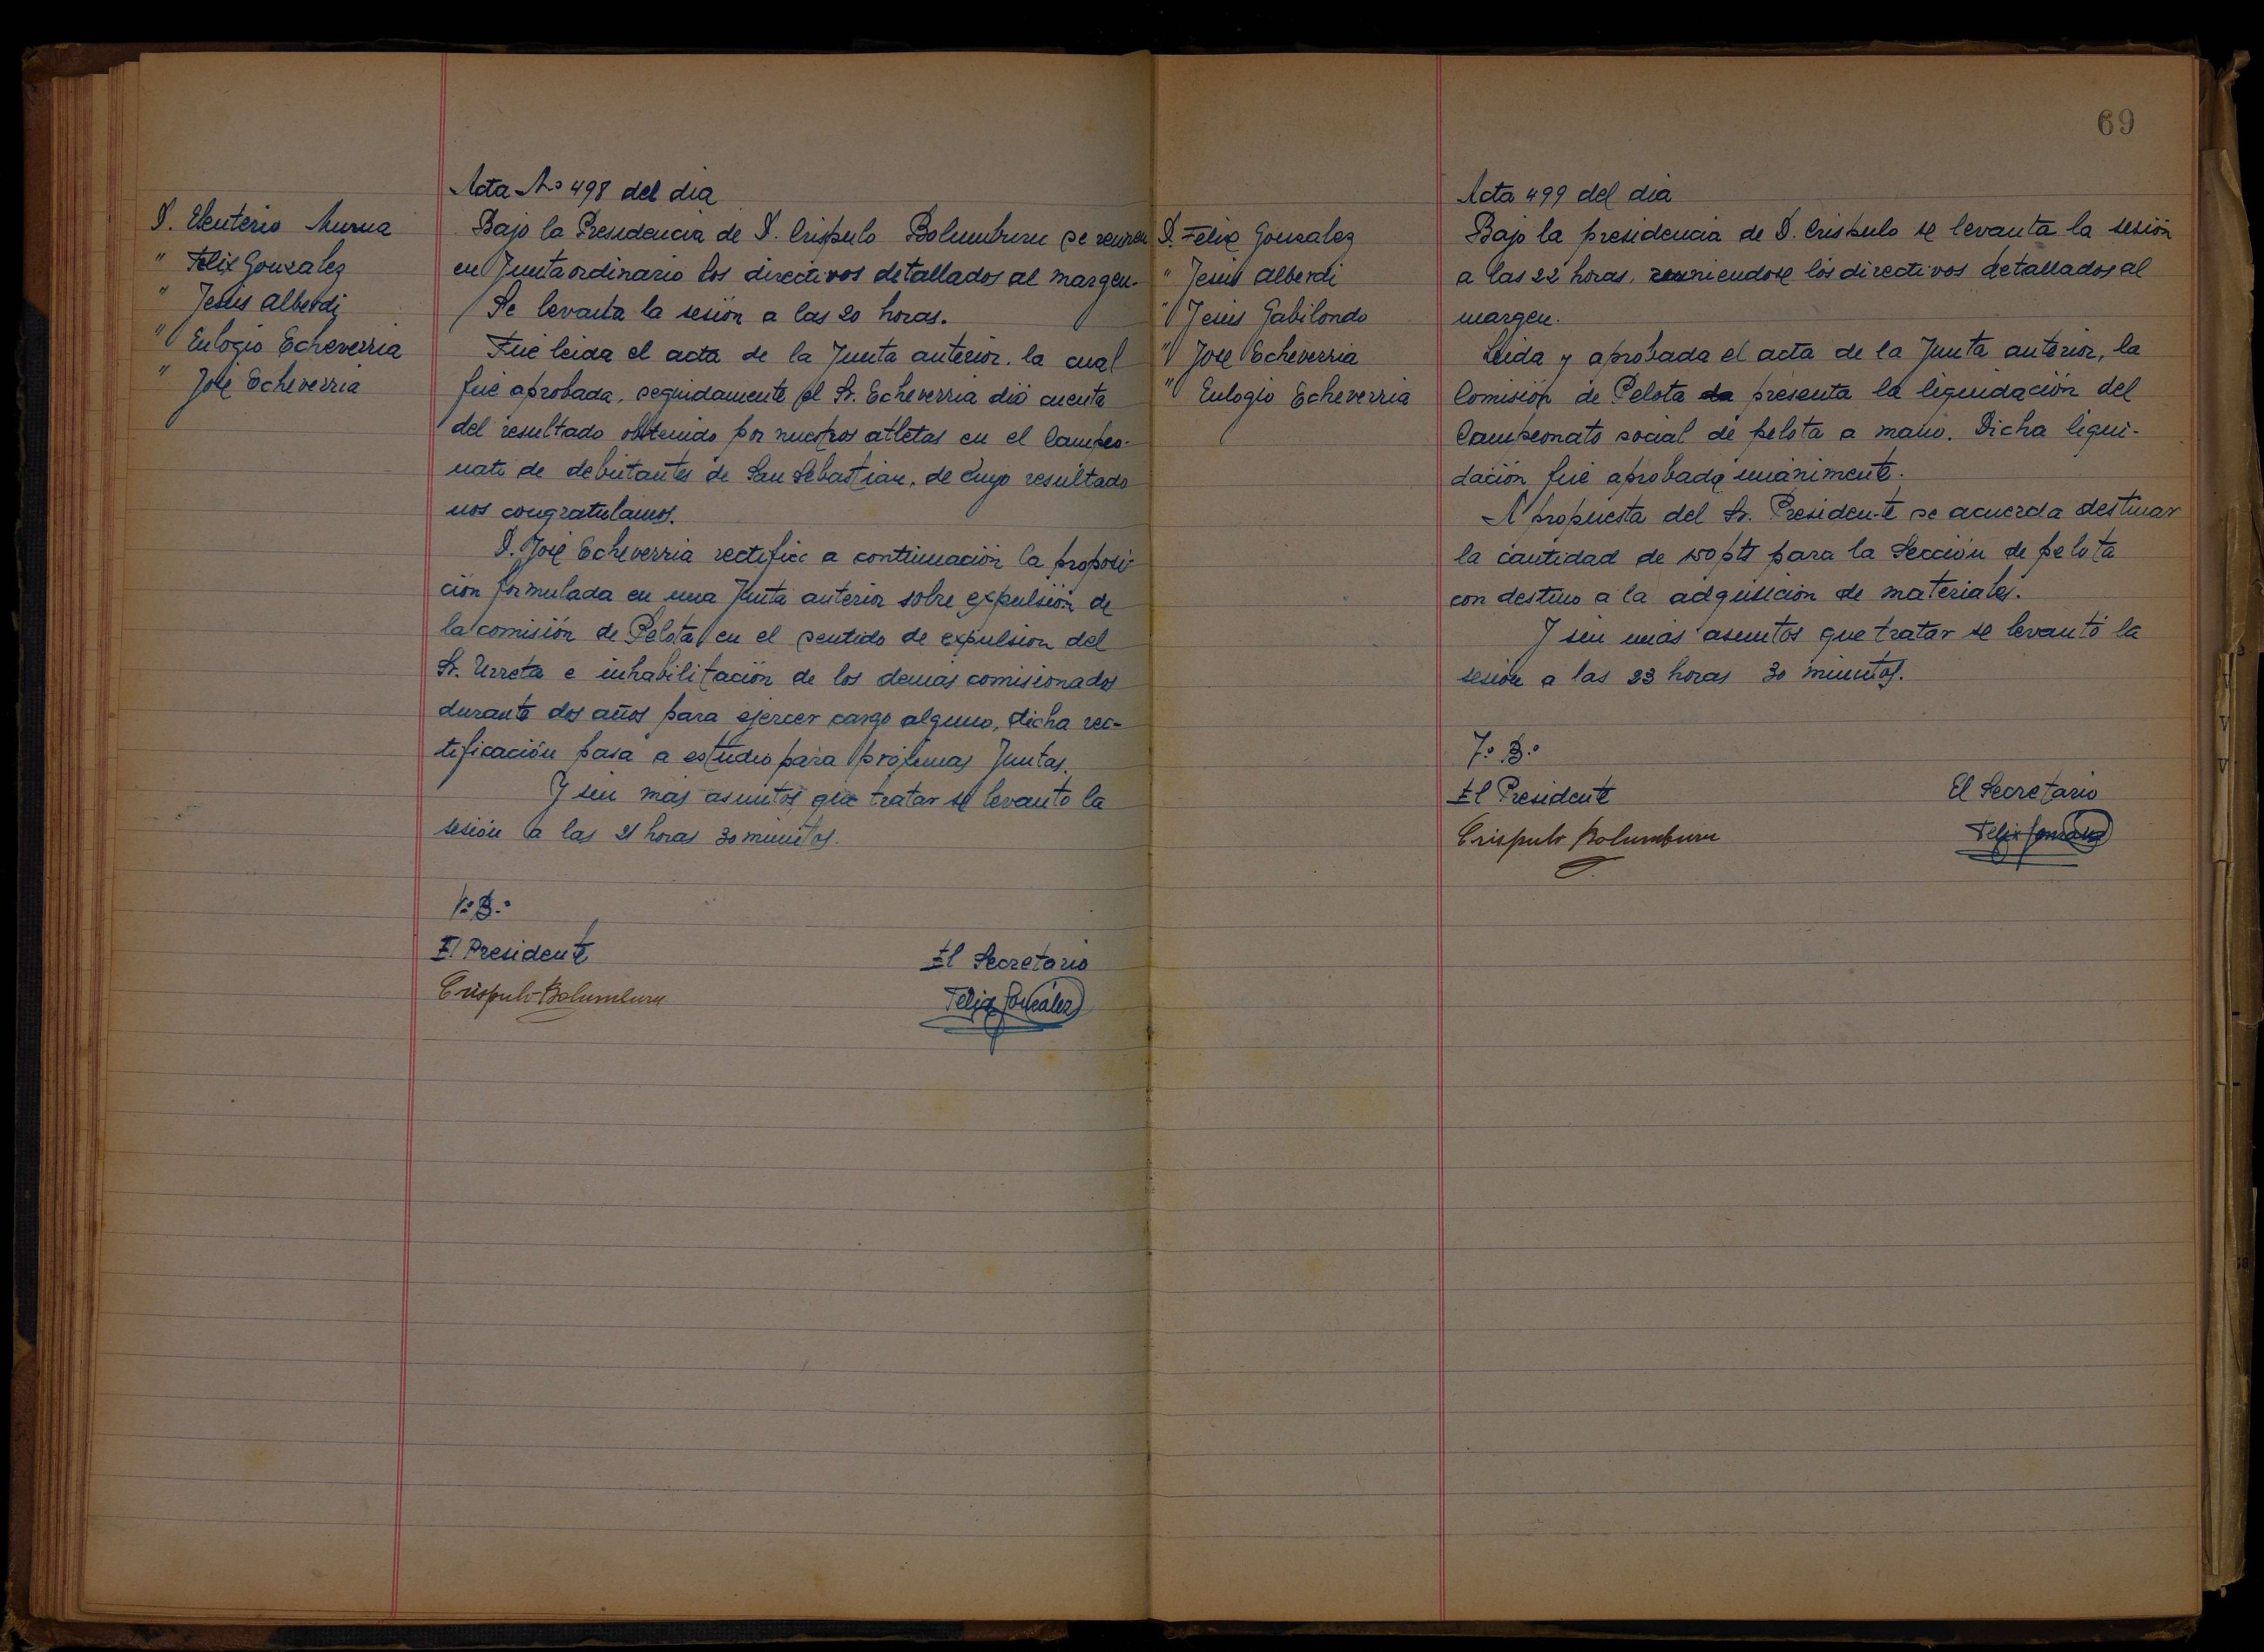 Acta No 498 del dia
D. Eleuterio Murua
" Felix Gonzalez
" Jesus Alberdi
" Eulogio Echeverria
" José Echeverria
Bajo la Presidencia de D. Crispulo Bolumburu se reunen
en Junta ordinario los directivos detallados al margen.
Se levanta la sesión a las 20 horas.
Fué leida el acta de la Junta anterior. la cual
fué aprobada, seguidamente el Sr. Echeverria dió cuenta
del resultado obtenido por nuestros atletas en el Campeo-
nato de debutantes de San Sebastian, de cuyo resultado
nos congratulamos.
D. José Echeverria rectifica a continuación la proposi-
ción formulada en una Junta anterior sobre expulsión de
la comisión de Pelota en el sentido de expulsion del
Sr. Urreta e inhabilitación de los demás comisionados
durante dos años para ejercer cargo alguno, dicha rec-
tificación pasa a estudio para próximas Juntas.
Y sin mas asuntos que tratar se levanto la
sesión a las 21 horas 30 minutos.
Vº Bº
El Presidente
El Secretario
Crispulo Bolumburu
Felix González
69
Acta 499 del dia
D. Felix Gonzalez
" Jesus Alberdi
" Jesus Gabilondo
" José Echeverria
" Eulogio Echeverria
Bajo la presidencia de D. Crispulo se levanta la sesión
a las 22 horas, reuniendose los directivos detallados al
margen.
Leida y aprobada el acta de la Junta anterior, la
Comisión de Pelota da presenta la liquidación del
Campeonato social de pelota a mano. Dicha liqui-
dación fué aprobada unánimente.
A propuesta del Sr. Presidente se acuerda destinar
la cantidad de 150 pts para la Sección de pelota
con destino a la adquisicion de materiales.
Y sin más asuntos que tratar se levantó la
sesión a las 23 horas 30 minutos.
Vº Bº
El Presidente
El Secretario
Crispulo Bolumburu
Felix González